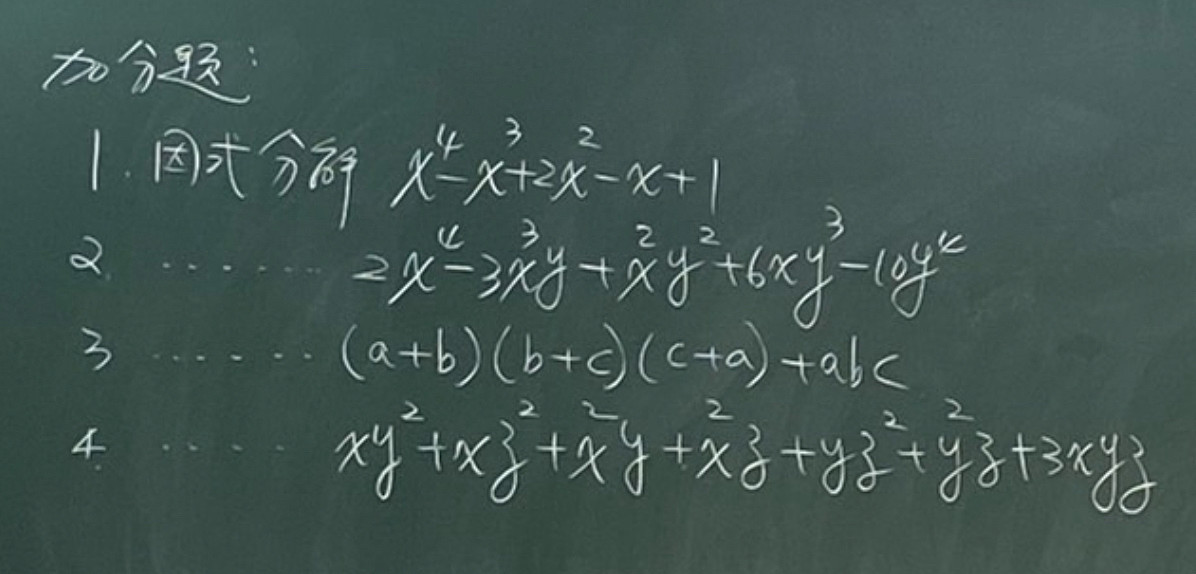 加分题:
1. 因式分解 x⁴-x³+2x²-x+1
2. ······· 2x⁴-3x³y+x²y²+6xy³-10y⁴
3 ······ (a+b)(b+c)(c+a)+abc
4. ···· xy²+xz²+x²y+x²z+yz²+y²z+3xyz